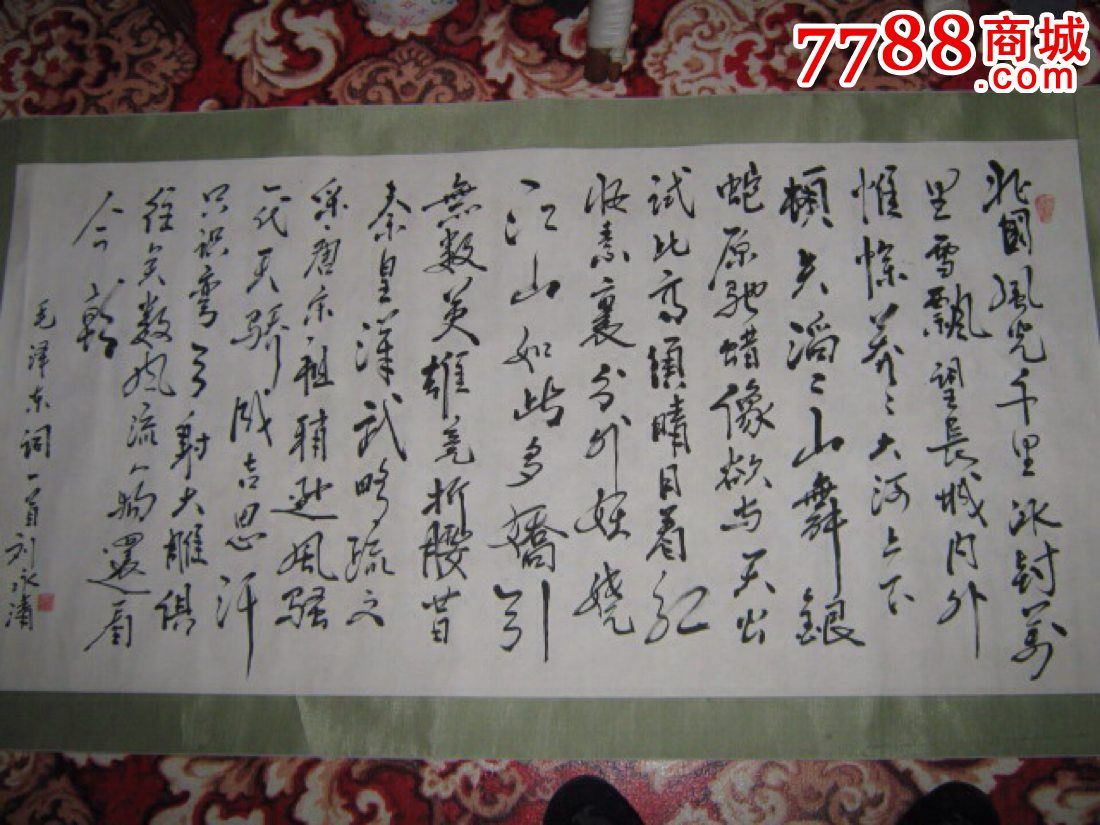 7788商城
.com
北國風光千里冰封萬
里雪飄望長城内外
惟馀莽〻大河上下
頓失滔〻山舞銀
蛇原驰蜡像欲与天公
試比高須晴日看红
妆素裹分外妖娆
江山如此多嬌引
無数英雄竞折腰昔
秦皇漢武略疏文
采唐宗祖稍逊風骚
一代天骄成吉思汗
只识弯弓射大雕俱
往矣数风流人物還看
今朝
毛泽东词一首 刘永清